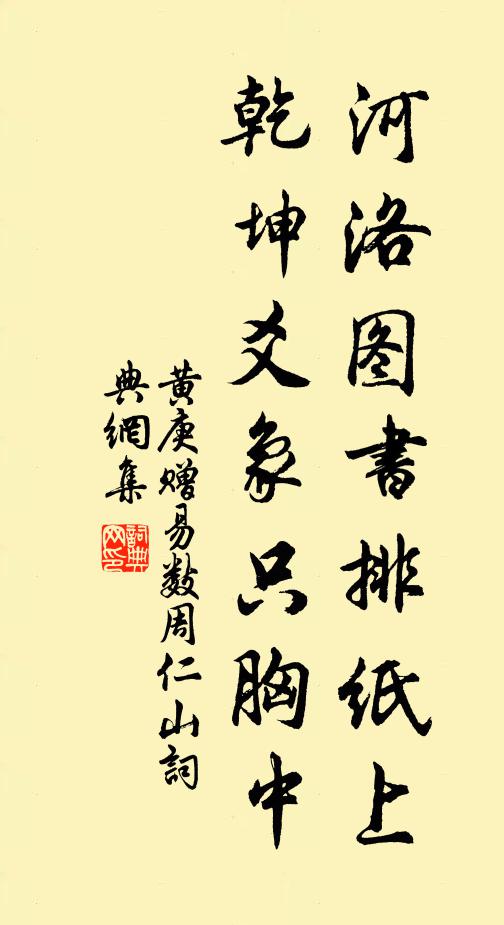 河洛图書排纸上
乾坤爻象只胸中
黄庚赠易数周仁山詞
典網集
詞典
网印